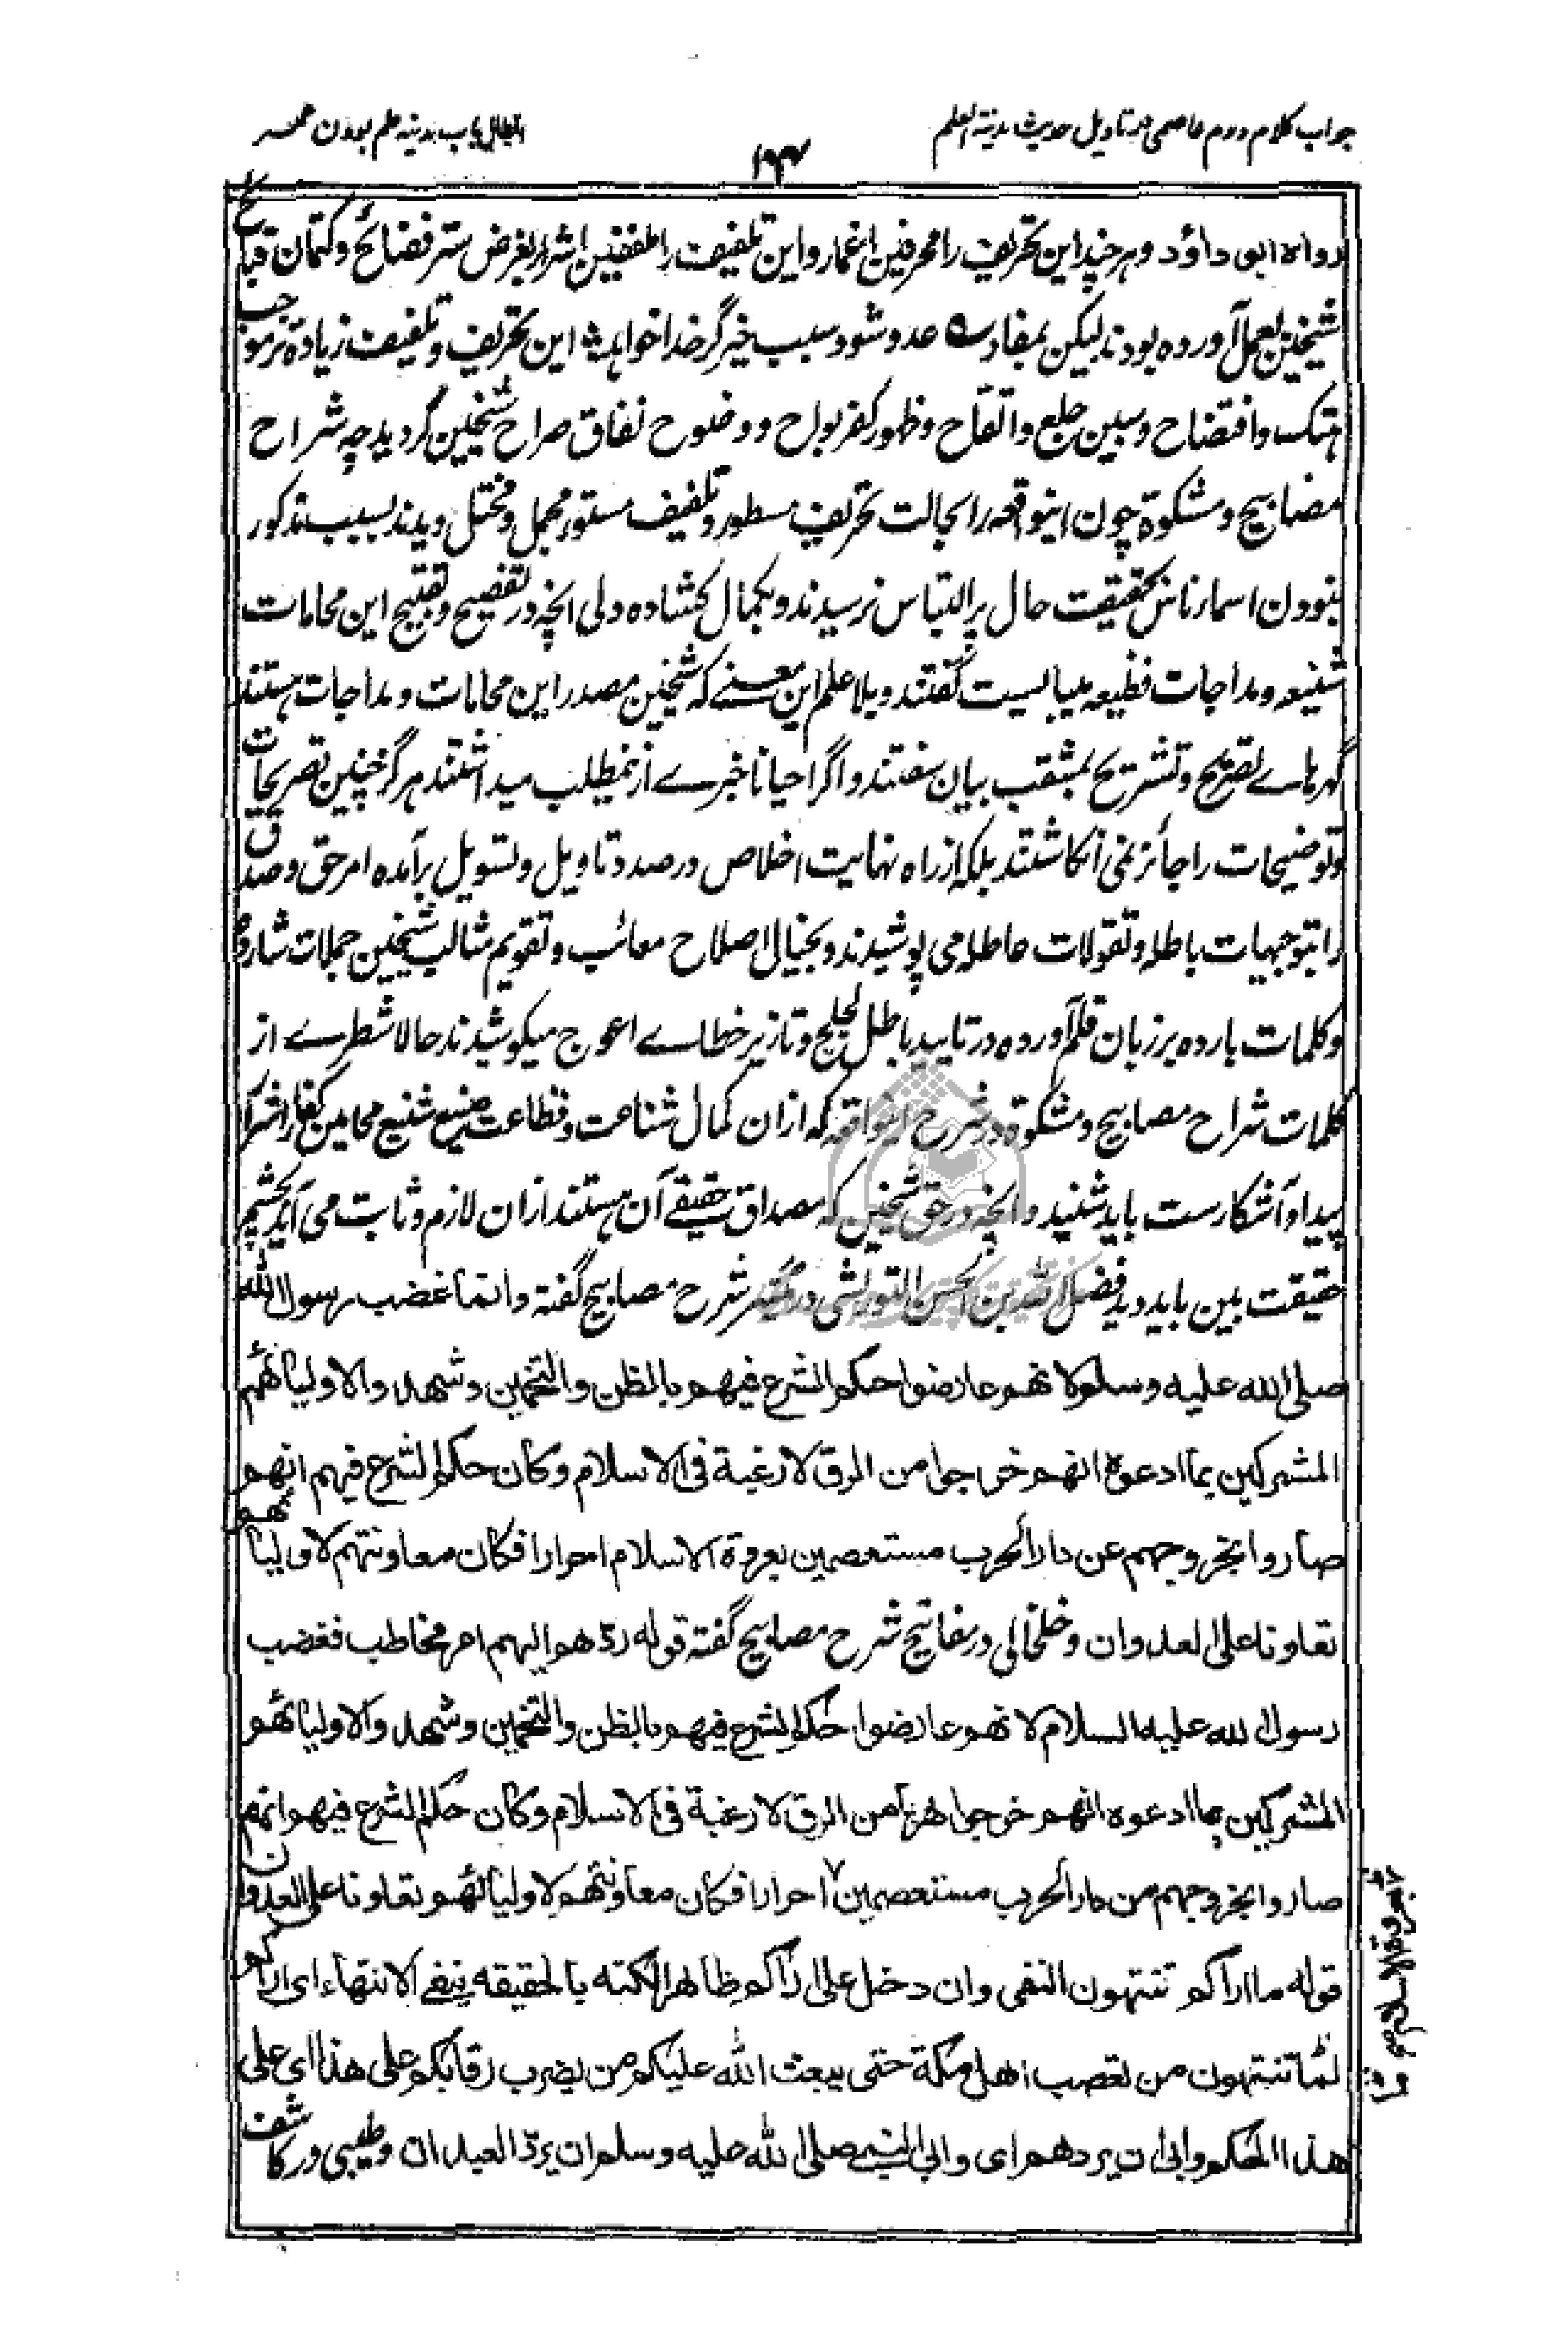 جواب کلام دوم عاصمی در تاویل حدیث مدینة العلم
ابطال باب مدینه علم بودن عمر
رواه ابو داؤد و هر چند این تحریف را محرفین اغمار و این تلفیف را ملففین اشرار بغرض ستر فضائح و کتمان قبائح
شیخین بعمل آورده بودند لیکن بمفاد ع عدو شود سبب خیر گر خدا خواهد این تحریف و تلفیف زیاده تر موجب
هتک و افتضاح و سبین خلع و اتقاح و ظهور کفر بواح و وضوح نفاق صراح شیخین گردید چه شراح
مصابیح و مشکوة چون اینواقعه را بحالت تحریف مسطور و تلفیف مستور مجمل و مختل دیدند بسبب مذکور
نبودن اسماء ناس بحقیقت حال پر التباس نرسیدند و بکمال کشاده دلی انچه در تفضیح و تقبیح این محامات
شنیعه و مداجات فظیعه میبایست گفتند و بلا علم این معنے که شیخین مصدر این محامات و مداجات هستند
گهرهاے تصریح و تشریح بمثقب بیان سفتند و اگر احیانا خبرے ازینمطلب میداشتند هرگز چنین تصریحات
و توضیحات را جائز نمی انگاشتند بلکه از راه نهایت اخلاص درصدد تاویل و تسویل برآمده امر حق و صدق
را بتوجیهات باطله و تقولات عاطله می پوشیدند و بخیال اصلاح معائب و تقویم مثالب شیخین جملات شارده
و کلمات بارده بر زبان قلم آورده در تایید باطل لجلج و تازیر خطاے اعوج میکوشیدند حالا شطرے از
کلمات شراح مصابیح و مشکوة در شرح اینواقعه که ازان کمال شناعت و فظاعت صنیع شنیع محامین کفار اشرار
پیدا و آشکارست باید شنید و انچه در حق شیخین که مصداق حقیقے آن هستند ازان لازم و ثابت می آید بچشم
حقیقت بین باید دید فضل الله بن الحسن التوربشتی در میسر شرح مصابیح گفته وانما غضب رسول الله
صلی الله علیه وسلم لانهم عارضوا حکم الشرع فیهم بالظن والتخمین وشهدوا لاولیائهم
المشرکین بما ادعوه انهم خرجوا من الرق لا رغبة فی الاسلام وکان حکم الشرع فیهم انهم
صاروا بخروجهم عن دار الحرب مستعصمین بعروة الاسلام احرارا فکان معاونتهم لاولیائهم
تعاونا علی العدوان وخلخالی در مفاتیح شرح مصابیح گفته قوله ردّ هم الیهم امر مخاطب فغضب
رسول الله علیه السلام لانهم عارضوا حکم الشرع فیهم بالظن والتخمین وشهدوا لاولیائهم
المشرکین بما ادعوه انهم خرجوا هربا من الرق لا رغبة فی الاسلام وکان حکم الشرع فیهم انهم
صاروا بخروجهم من دار الحرب مستعصمین احرارا فکان معاونتهم لاولیائهم تعاونا علی العدوان
بعروة الاسلام
قوله ما اراکم تنتهون النفی وان دخل علی اراکم ظاهرا لکنه بالحقیقه ینفے الانتهاء ای اراکم
لما تنتهون من تعصب اهل مکة حتی یبعث الله علیکم من یضرب رقابکم علی هذا ای علی
هذا الحکم وابی ان یردهم ای وابی النبے صلی الله علیه وسلم ان یردّ العبدان وطیبی در کاشف